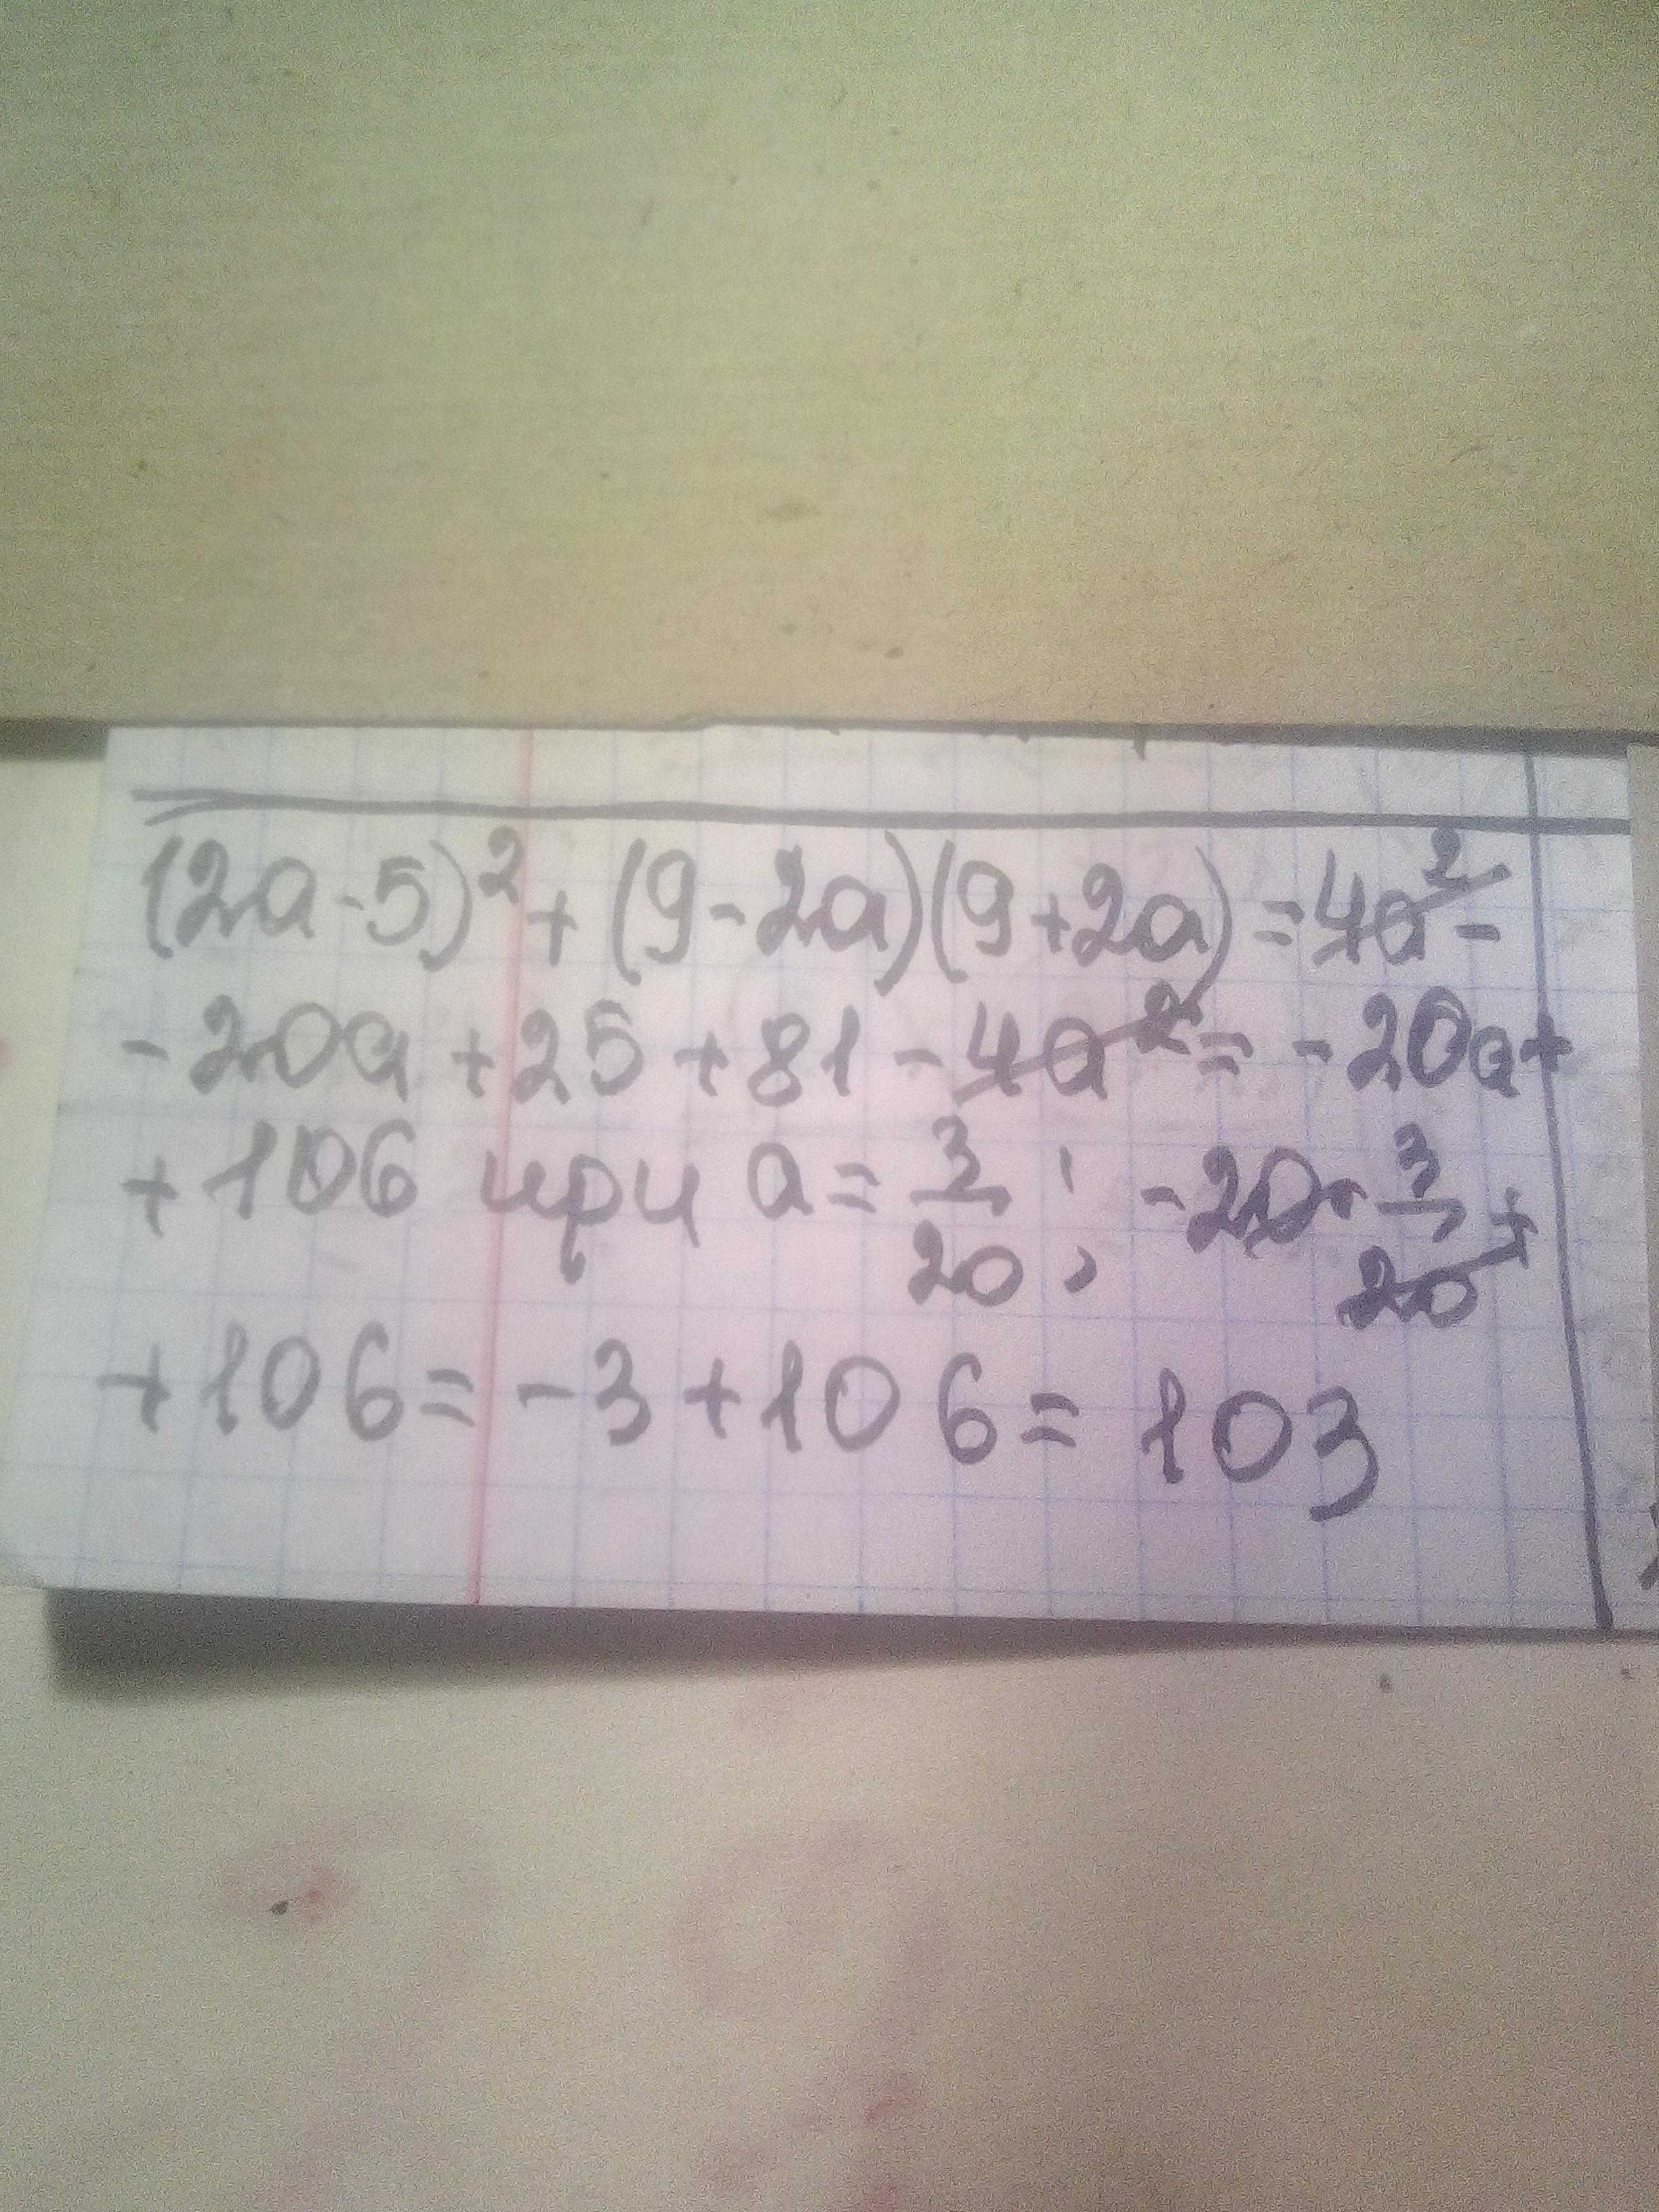 (2a-5)² + (9-2a)(9+2a) = 4a² -
- 20a + 25 + 81 - 4a² = - 20a +
+ 106 при a = 3/20 ; - 20 · 3/20 +
+ 106 = - 3 + 106 = 103